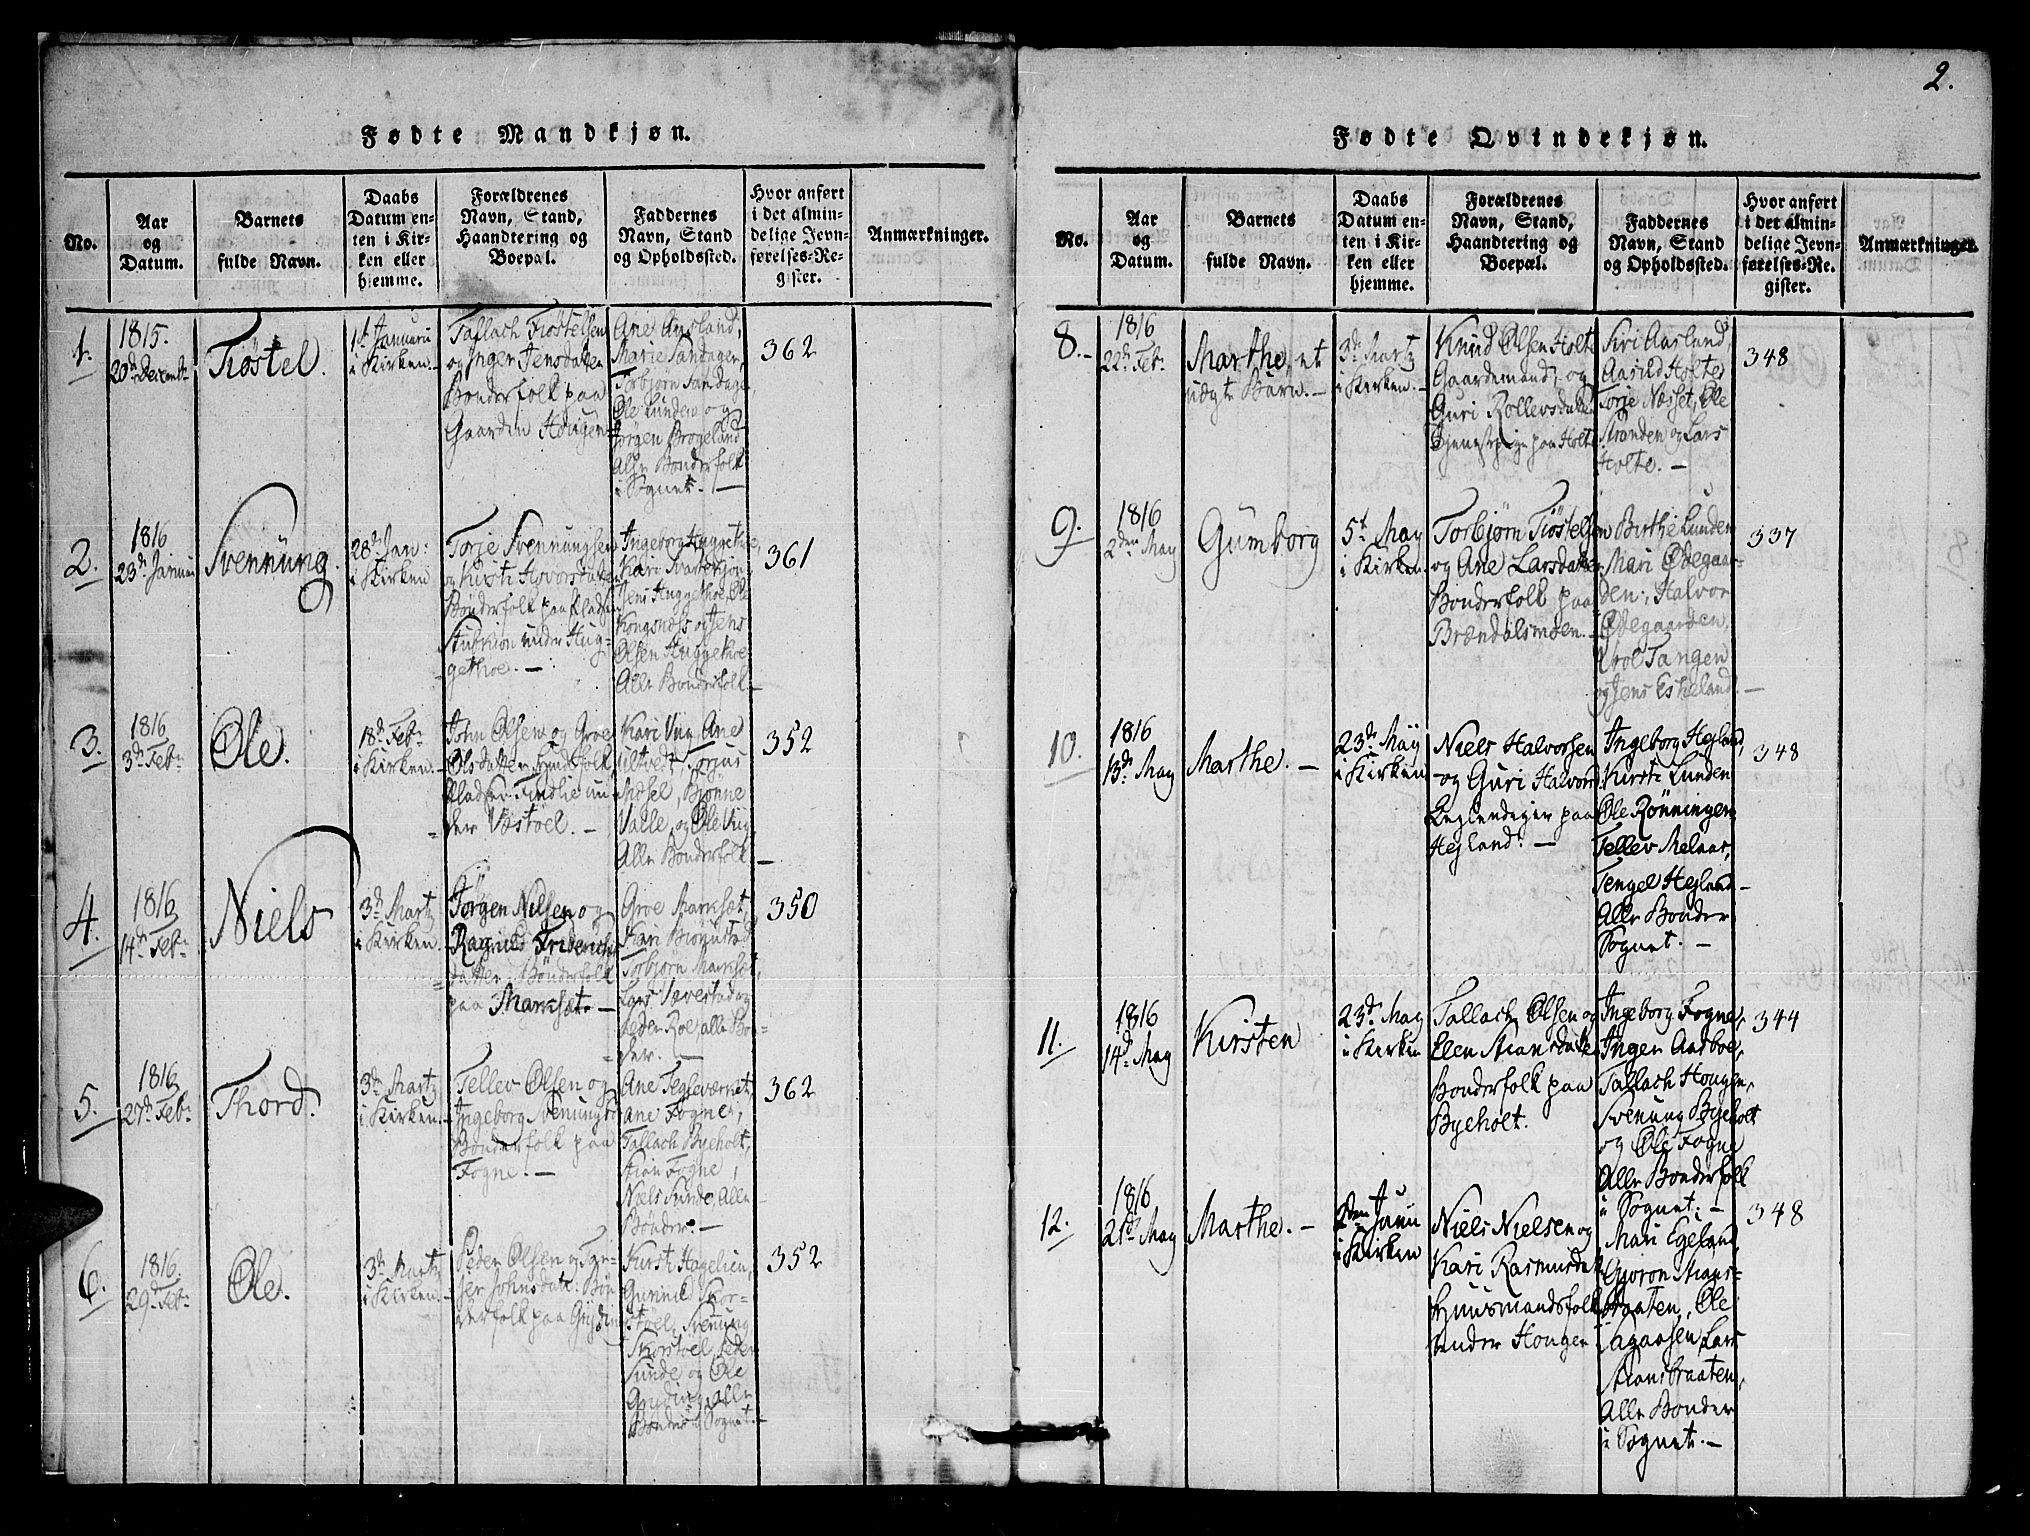 2.
Fødte Mandkjøn.
No.
Aar
og
Datum.
Barnets
fulde Navn.
Daabs
Datum en-
ten i Kir-
ken eller
hjemme.
Forældrenes
Navn, Stand,
Haandtering og
Boepæl.
Faddernes
Navn, Stand
og Opholdssted.
Hvor anført
i det almin-
delige Jevn-
førelses-Re-
gister.
Anmærkninger.
1.
1815.
20de Decembr
Tiøstel.
1ste Januari
i Kirken.
Tallach Tiøstelsen
og Inger Jensdatter
Bønderfolk paa
Gaarden Hougen
Ane Aasland,
Marie Sandager,
Torbjørn Sandager
Ole Lunden og
Jørgen Brogeland
Alle Bønderfolk
i Sognet. —
362
2.
1816
23de Januari
Svennung.
28de Jan:
i Kirken
Torje Svennungsen
og Kirsti Halvorsdatter
Bønderfolk paa Pladsen
under Hug-
gethoe. —
Ingeborg Huggethoe
Kari
Jens Huggethoe, Ole
Kongsnæss og Jens
Olsen Huggethoe
Alle Bønderfolk —
361
3.
1816
3de Febr
Ole.
18de Febr
i Kirken. —
John Olsen og Groe
Olsdatter Huusfolk
Pladsen Findlie un-
der Væstøel. —
Kari Vig, Ane
Torjus
Mæsel, Bjønne
Valle, og Ole Vig,
Alle Bønderfolk —
352
4.
1816
14de Febr
Niels
3de Martz
i Kirken.
Jørgen Nilsen og
Ragnild Friderichs-
datter. Bønderfolk
paa Marksæt. —
Groe Marksæt,
Kari Biønnstad
Torbjørn Marksæt,
Lars Væverstad og
Peder Roe, alle Bøn-
der. —
350
5.
1816
27de Febr
Thord.
3de Martz
i Kirken.
Tellev Olsen og
Ingeborg Svenungsd
Bønderfolk paa
Fogne. —
Ane Tegleværket,
Ane Fogne,
Tallach Byeholt,
Stian Fogne,
Niels Sunde, Alle
Bønder. —
362
6.
1816.
29de Febr
Ole.
3de Martz
i Kirken. —
Peder Olsen og In-
ger Johnsdatt: Bøn-
derfolk paa Gryding
Kirsti Hagelien,
Gunnild Skor-
støel, Svenung
Skorstøel, Peder
Sunde og Ole
Gryding, alle
Bønder i Sognet —
352
Fødte Qvindekjøn.
No.
Aar
og
Datum.
Barnets
fulde Navn.
Daabs
Datum en-
ten i Kir-
ken eller
hjemme.
Forældrenes
Navn, Stand,
Haandtering og
Boepæl.
Faddernes
Navn, Stand
og Opholdssted.
Hvor anført
i det almin-
delige Jevn-
førelses-Re-
gister.
Anmærkninger.
8. —
1816
22de Febr
Marthe, et
uægte Barn. —
3de Martz
i Kirken. —
Knud Olsen Holte
Gaardemand, og
Guri Rollevsdatter
Tjenestpige paa Holte
Siri Aasland,
Aasild Holte,
Torje Næsset, Ole
Stranden og Lars
Holte. —
348
9.
1816
2den May
Gumborg
5te May
i Kirken.
Torbjørn Tiøstelsen
og Ane Larsdatter
Bønderfolk paa
Brændalsmoen. —
Birthe Lunden
Mari Ødegaar-
den, Halvor
Ødegaarden
Trol Tangen
og Jens Eskeland. —
337
10.
1816
13de May
Marthe. —
23de May
i Kirken
Niels Halvorsen
og Guri Halvorsd
Leglendiger paa
Hegland. —
Ingeborg Hegland,
Kirsti Lunden
Ole Rønningen
Tellev Melaas,
Tengel Hegland —
Alle Bønder
Sognet. —
348
11.
1816
14de May
Kirsten
23de May
i Kirken
Tallach Olsen og
Elen Stiansdatter
Bønderfolk paa
Byeholt.
Ingeborg Fogne,
Inger Aasboe,
Tallach Hougen,
Svenung Byeholt
og Ole Fogne
Alle Bønderfolk
i Sognet. —
344
12.
1816
21de May
Marthe. —
2den Juni
i Kirken
Niels Nielsen og
Kari Rasmusdat
Huusmandsfolk
under Hougen
Mari Egeland,
Gjøron Stians-
braaten, Ole
Lars
Stiansbraaten,
Alle Bønder
i Sognet. —
348